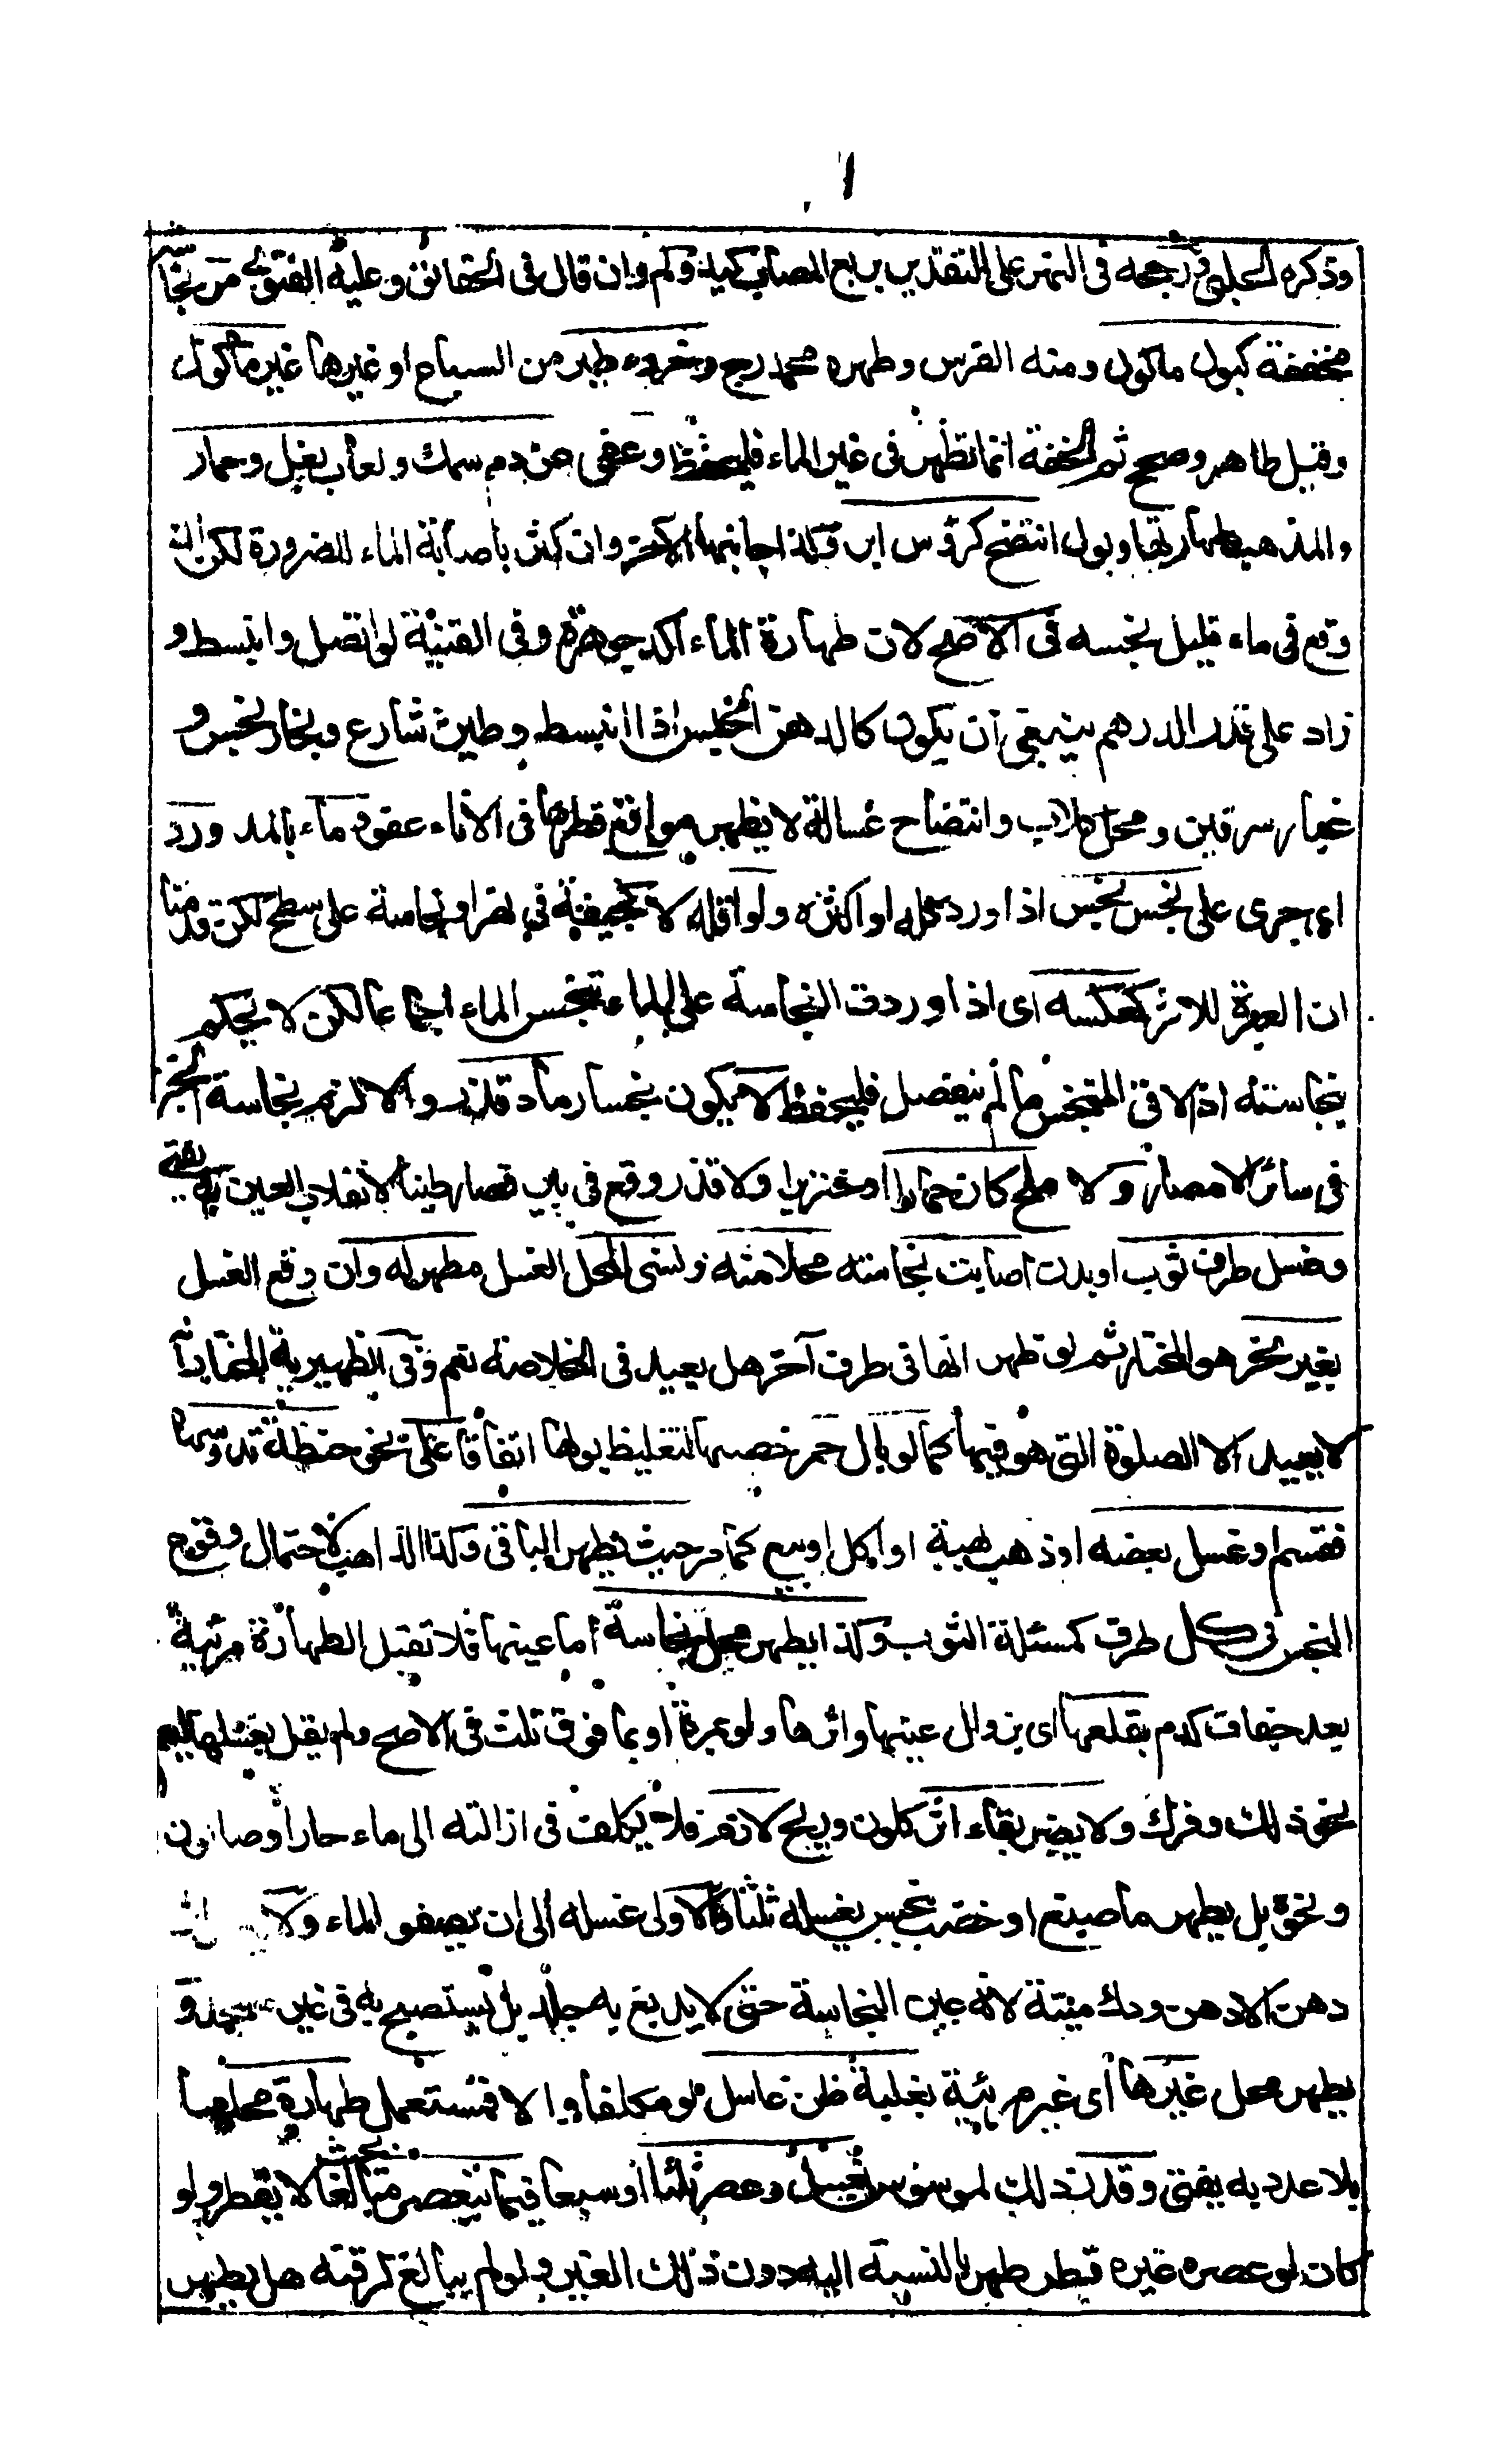 وذكره الحلبي ورجحه في النهر على التقدير بربع المصاب كيد وكم وان قال في الحقائق وعليه الفتوى من نجاسة
مخففة كبول ماكول ومنه الفرس وطهره محمد رح وخرء طير من السباع او غيرها غير مأكول
وقيل طاهر وصحح ثم الخفة انما تظهر في غير الماء فليحفظ وعفى عن دم سمك ولعاب بغل وحمار
والمذهب طهارتها وبول انتضح كرؤس ابر وكذا جانبها الآخر وان كثر باصابة الماء للضرورة لكن لو
وقع في ماء قليل نجسه في الاصح لان طهارة الماء آكد جوهرة وفى القنية لو اتصل وانبسط و
زاد على قدر الدرهم ينبغي ان يكون كالدهن النجس اذا انبسط وطين شارع وبخار نجس و
غبار سرقين ومحل كلاب وانتضاح غسالة لا يظهر مواقع قطرها في الاناء عفو وماء بالمد ورد
اي جرى على نجس نجس اذا ورد كله او اكثره ولو اقله لا كجيفة في نهر او نجاسة على سطح لكن قدمنا
ان العبرة للاثر كعكسه اى اذا وردت النجاسة على الماء تنجس الماء اجماعا لكن لا يحكم
بنجاسته اذا لاقى المتنجس ما لم ينفصل فليحفظ لا يكون نجسا رماد قذر والا لزم نجاسة الخبز
في سائر الامصار ولا ملح كان حمارا او خنزيرا ولا قذر وقع في بئر فصار طينا لانقلاب العين به يفتى
وغسل طرف ثوب او بدن اصابت نجاسته محلا منه ونسى المحل الغسل مطهر له وان وقع الغسل
بغير تحر هو المختار ثم لو ظهر انها في طرف آخر هل يعيد في الخلاصة نعم وفي الظهيرية المختار انه
لا يعيد الا الصلوة التي هو فيها كما لو بال حمر خصها لتغليظ بولها اتفاقا على نحو حنطة تدوسها
فقسم او غسل بعضه او ذهب بهبة او اكل او بيع كما مر حيث يطهر الباقى وكذا الذاهب لاحتمال وقوع
النجس في كل طرف كمسئلة الثوب وكذا يطهر محل نجاسة اما عينها فلا تقبل الطهارة مرئية
بعد جفاف كدم بقلعها اى بزوال عينها واثرها ولو بمرة او بما فوق ثلث في الاصح ولم يقل بغسلها ليعم
نحو دلك وفرك ولا يضر بقاء اثر كلون وريح لازم فلا يكلف في ازالته الى ماء حار او صابون
ونحوه بل يطهر ما صبغ او خضب بنجس بغسله ثلثا والاولى غسله الى ان يصفو الماء ولا يضر اثر
دهن الا دهن ودك ميتة لانه عين النجاسة حتى لا يدبغ به جلد بل يستصبح به في غير مسجد و
يطهر محل غيرها اى غير مرئية بغلبة ظن غاسل لو مكلفا والا فمستعمل طهارة محلها
بلا عدد به يفتى وقدر ذلك لموسوس بغسل وعصر ثلثا او سبعا فيما ينعصر مبالغا بحيث لا يقطر ولو
كان لو عصره غيره قطر طهر بالنسبة اليه دون ذلك الغير ولو لم يبالغ لرقته هل يطهر